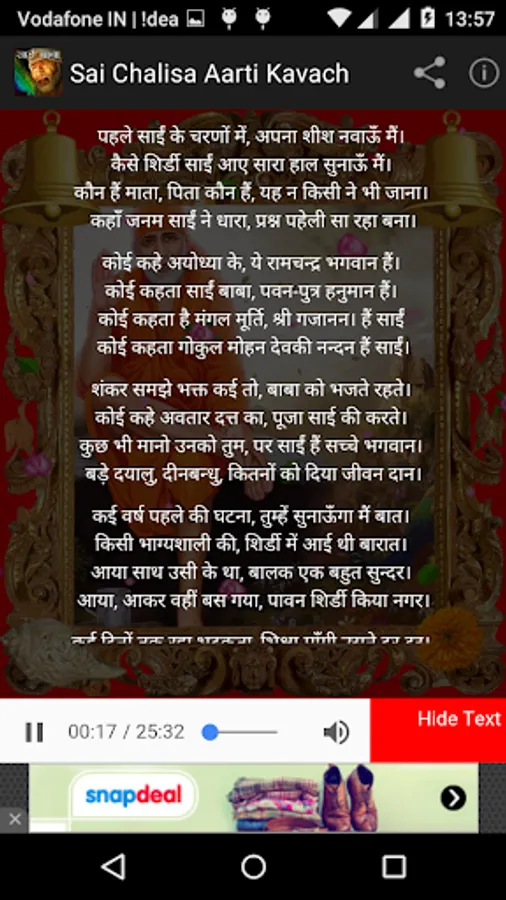 Vodafone IN | !dea
13:57
Sai Chalisa Aarti Kavach
पहले साईं के चरणों में, अपना शीश नवाऊँ मैं।
कैसे शिर्डी साईं आए सारा हाल सुनाऊँ मैं।
कौन हैं माता, पिता कौन हैं, यह न किसी ने भी जाना।
कहाँ जनम साईं ने धारा, प्रश्न पहेली सा रहा बना।
कोई कहे अयोध्या के, ये रामचन्द्र भगवान हैं।
कोई कहता साईं बाबा, पवन-पुत्र हनुमान हैं।
कोई कहता है मंगल मूर्ति, श्री गजानन। हैं साईं
कोई कहता गोकुल मोहन देवकी नन्दन हैं साईं।
शंकर समझे भक्त कई तो, बाबा को भजते रहते।
कोई कहे अवतार दत्त का, पूजा साई की करते।
कुछ भी मानो उनको तुम, पर साईं हैं सच्चे भगवान।
बड़े दयालु, दीनबन्धु, कितनों को दिया जीवन दान।
कई वर्ष पहले की घटना, तुम्हें सुनाऊँगा मैं बात।
किसी भाग्यशाली की, शिर्डी में आई थी बारात।
आया साथ उसी के था, बालक एक बहुत सुन्दर।
आया, आकर वहीं बस गया, पावन शिर्डी किया नगर।
00:17 / 25:32
Hide Text
snapdeal